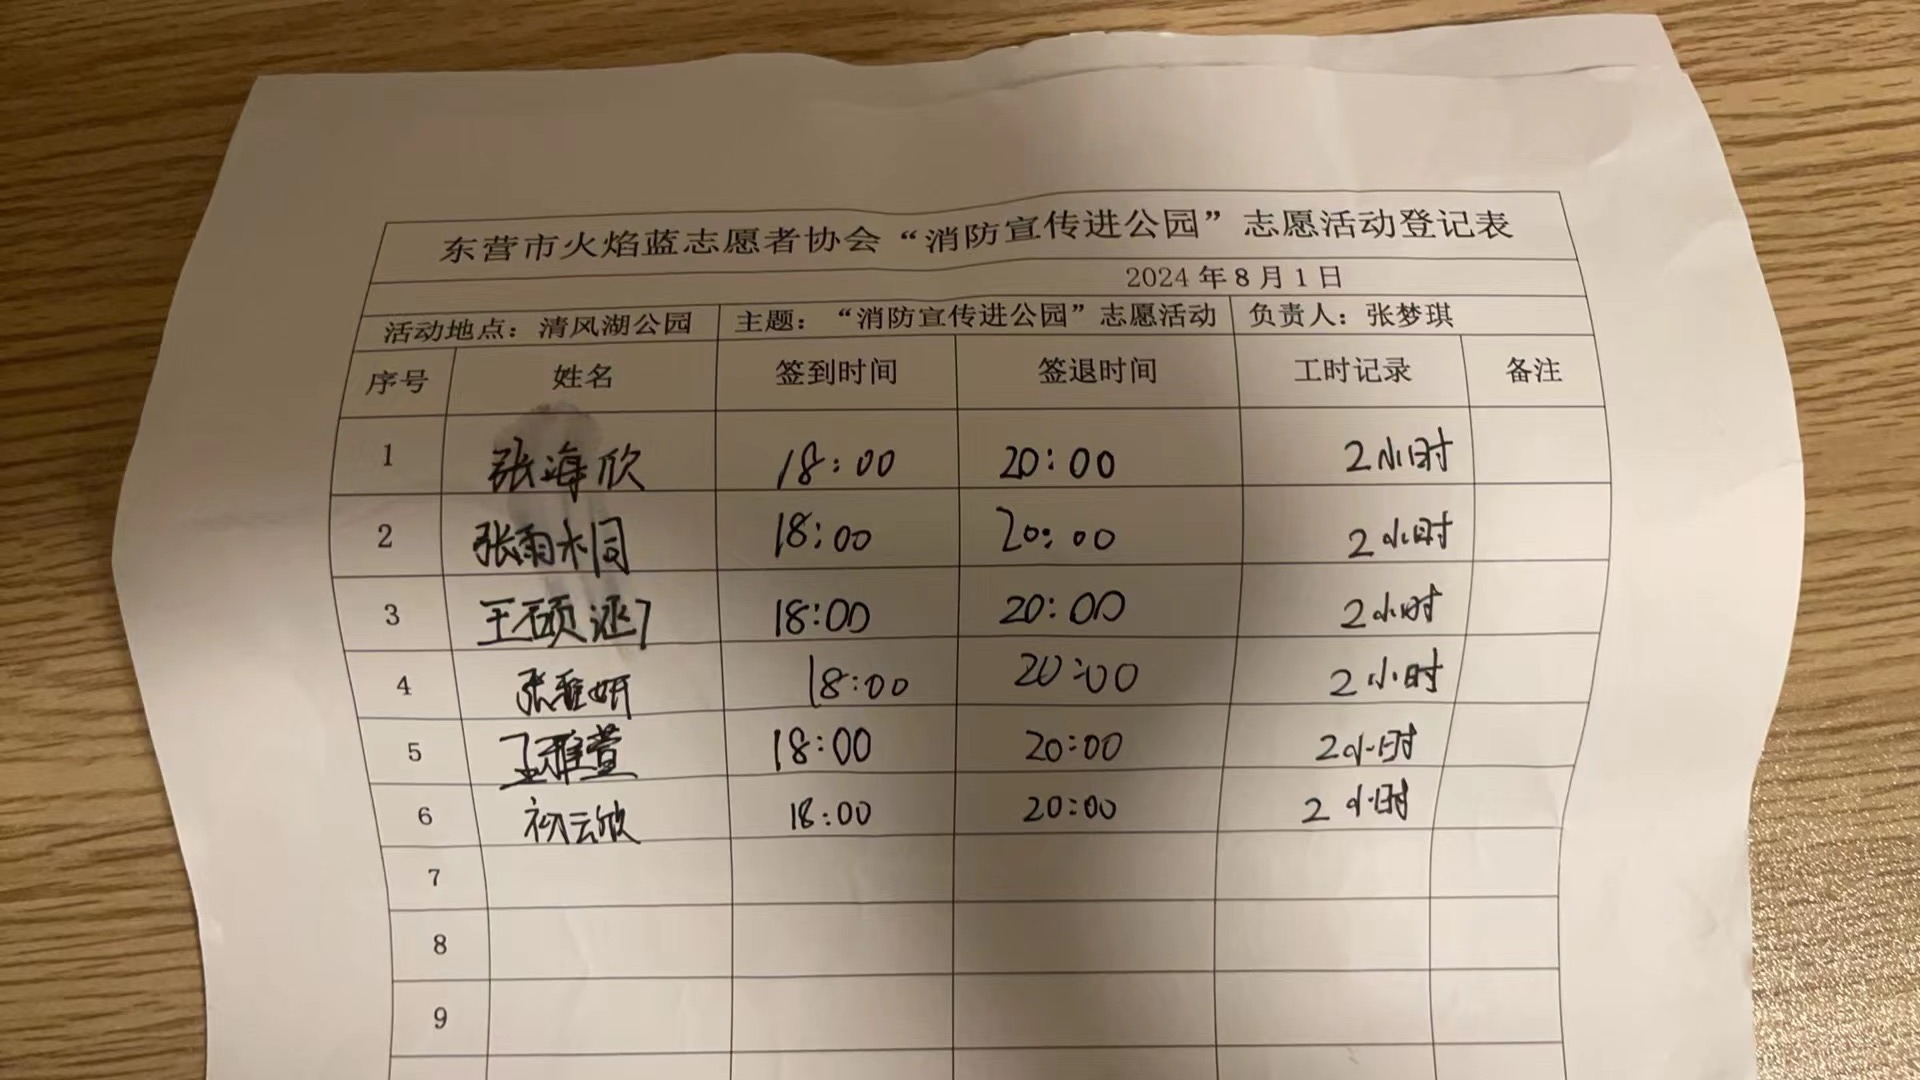 东营市火焰蓝志愿者协会“消防宣传进公园”志愿活动登记表
2024年8月1日
活动地点：清风湖公园 主题：“消防宣传进公园”志愿活动 负责人：张梦琪
序号 姓名 签到时间 签退时间 工时记录 备注
1 张海欣 18:00 20:00 2小时
2 张雨桐 18:00 20:00 2小时
3 王硕涵 18:00 20:00 2小时
4 张雅妍 18:00 20:00 2小时
5 王雅萱 18:00 20:00 2小时
6 初云欣 18:00 20:00 2小时
7
8
9